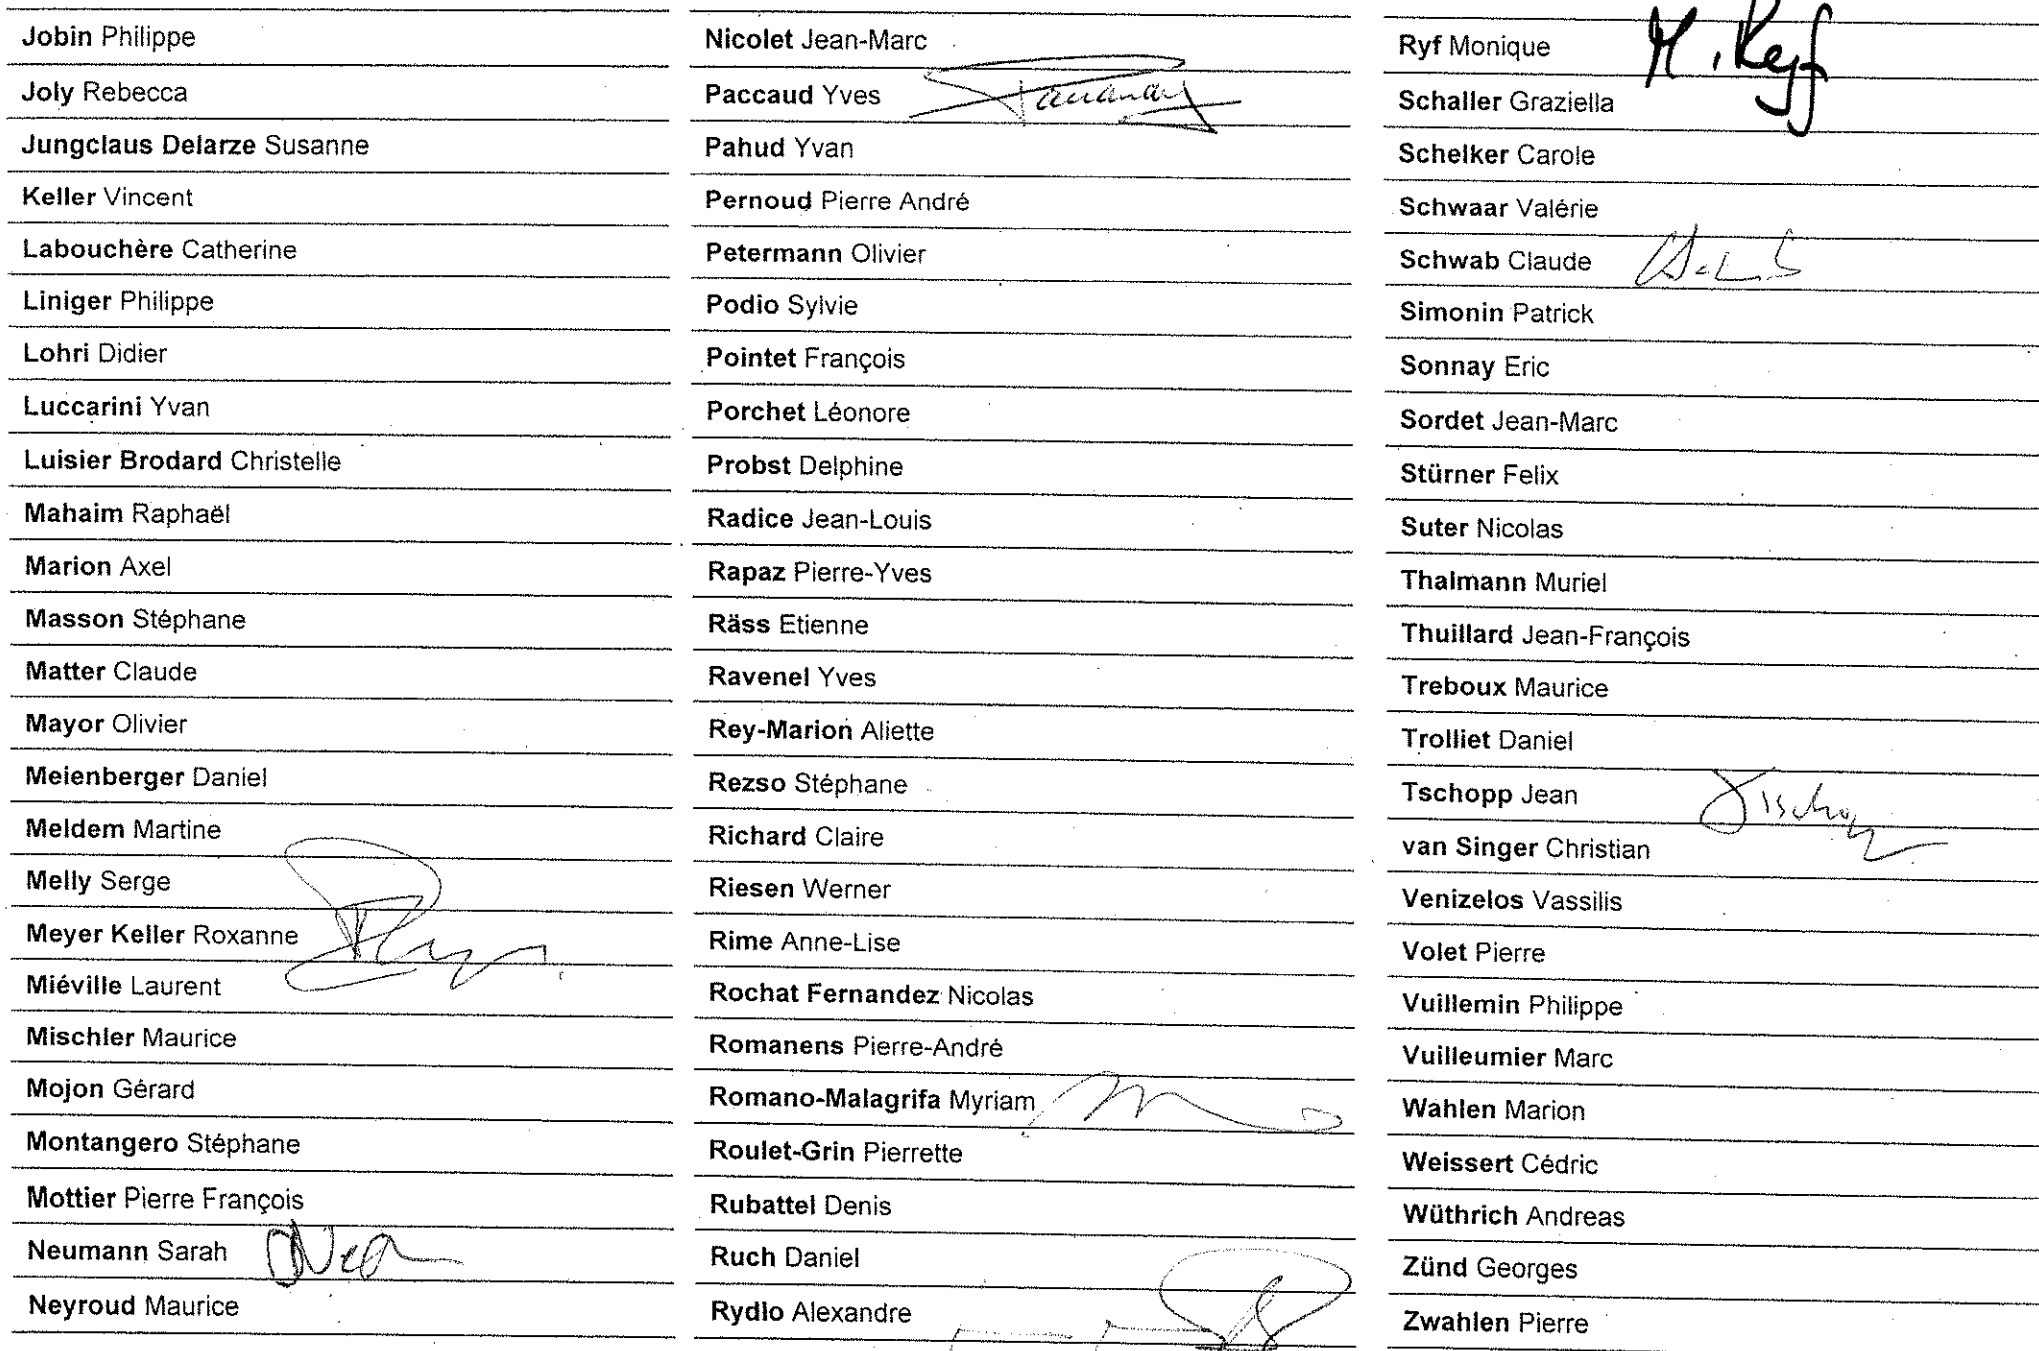 Jobin Philippe
Joly Rebecca
Jungclaus Delarze Susanne
Keller Vincent
Labouchère Catherine
Liniger Philippe
Lohri Didier
Luccarini Yvan
Luisier Brodard Christelle
Mahaim Raphaël
Marion Axel
Masson Stéphane
Matter Claude
Mayor Olivier
Meienberger Daniel
Meldem Martine
Melly Serge
Meyer Keller Roxanne
Miéville Laurent
Mischler Maurice
Mojon Gérard
Montangero Stéphane
Mottier Pierre François
Neumann Sarah
Neyroud Maurice
Nicolet Jean-Marc
Paccaud Yves
Pahud Yvan
Pernoud Pierre André
Petermann Olivier
Podio Sylvie
Pointet François
Porchet Léonore
Probst Delphine
Radice Jean-Louis
Rapaz Pierre-Yves
Räss Etienne
Ravenel Yves
Rey-Marion Aliette
Rezso Stéphane
Richard Claire
Riesen Werner
Rime Anne-Lise
Rochat Fernandez Nicolas
Romanens Pierre-André
Romano-Malagrifa Myriam
Roulet-Grin Pierrette
Rubattel Denis
Ruch Daniel
Rydlo Alexandre
Ryf Monique
Schaller Graziella
Schelker Carole
Schwaar Valérie
Schwab Claude
Simonin Patrick
Sonnay Eric
Sordet Jean-Marc
Stürner Felix
Suter Nicolas
Thalmann Muriel
Thuillard Jean-François
Treboux Maurice
Trolliet Daniel
Tschopp Jean
van Singer Christian
Venizelos Vassilis
Volet Pierre
Vuillemin Philippe
Vuilleumier Marc
Wahlen Marion
Weissert Cédric
Wüthrich Andreas
Zünd Georges
Zwahlen Pierre